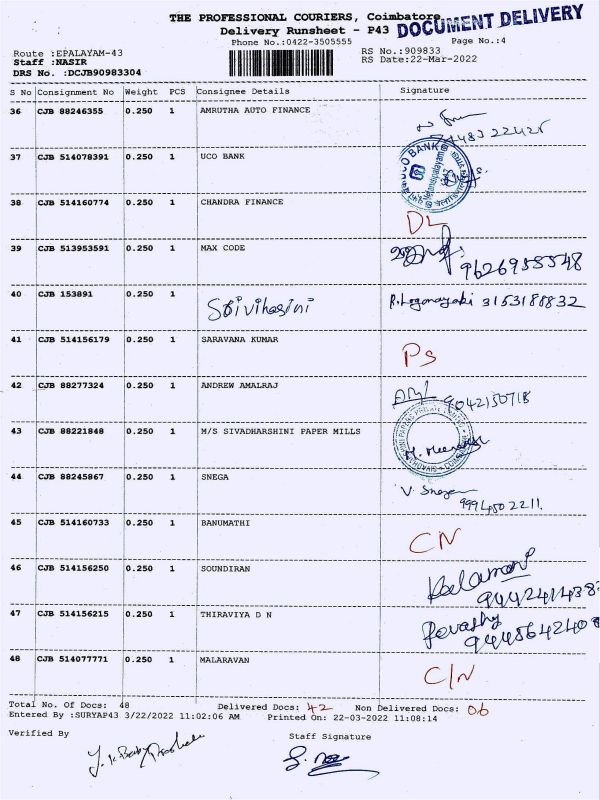 THE PROFESSIONAL COURIERS, Coimbatore
DOCUMENT DELIVERY
Delivery Runsheet - P43
Phone No.:0422-3505555 Page No.:4
Route :EPALAYAM-43 RS No.:909833
Staff :NASIR RS Date:22-Mar-2022
DRS No. :DCJB90983304
S No Consignment No Weight PCS Consignee Details Signature
36 CJB 88246355 0.250 1 AMRUTHA AUTO FINANCE
37 CJB 514078391 0.250 1 UCO BANK
UCO BANK
38 CJB 514160774 0.250 1 CHANDRA FINANCE DL
39 CJB 513953591 0.250 1 MAX CODE 9626955548
40 CJB 153891 0.250 1 Srivihasini R.Loganayaki 3153188832
41 CJB 514156179 0.250 1 SARAVANA KUMAR PS
42 CJB 88277324 0.250 1 ANDREW AMALRAJ 9042150718
43 CJB 88221848 0.250 1 M/S SIVADHARSHINI PAPER MILLS
44 CJB 88245867 0.250 1 SNEGA V. Snega
9994502211
45 CJB 514160733 0.250 1 BANUMATHI CN
46 CJB 514156250 0.250 1 SOUNDIRAN
47 CJB 514156215 0.250 1 THIRAVIYA D N Revathy
48 CJB 514077771 0.250 1 MALARAVAN C/N
Total No. Of Docs: 48 Delivered Docs: 42 Non Delivered Docs: 06
Entered By :SURYAP43 3/22/2022 11:02:06 AM Printed On: 22-03-2022 11:08:14
Verified By Staff Signature